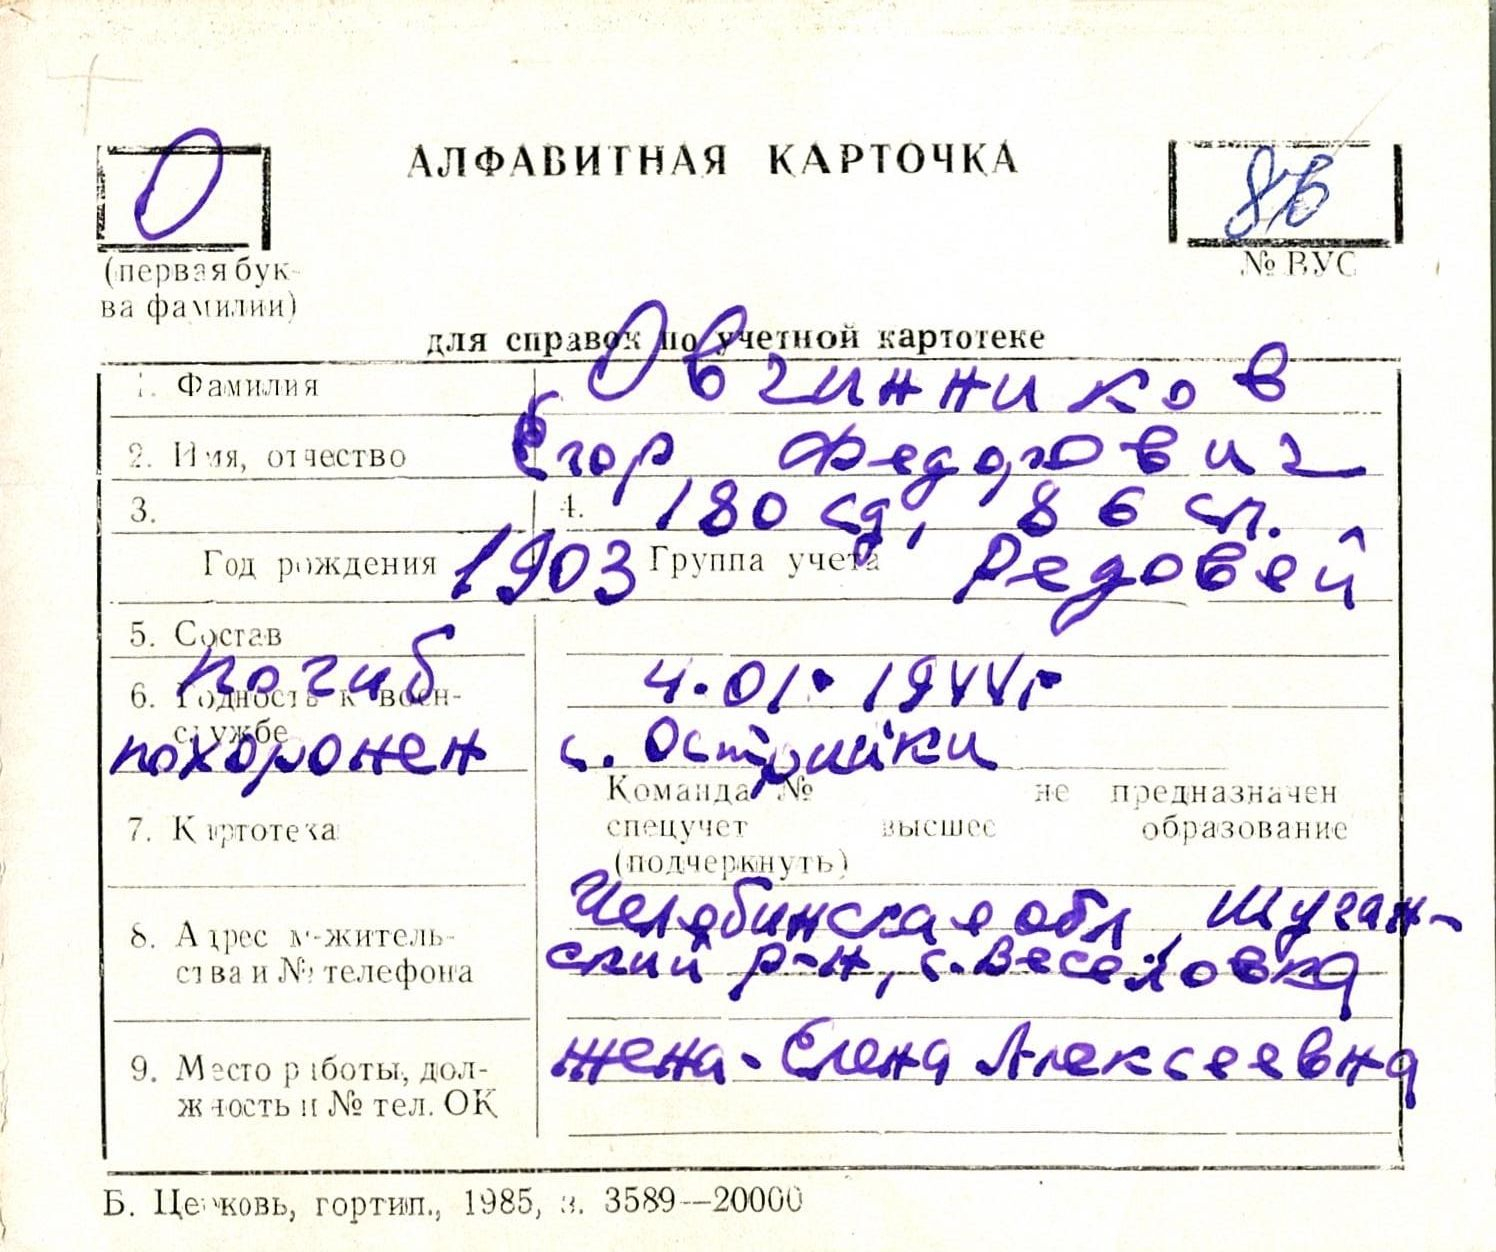 О
АЛФАВИТНАЯ КАРТОЧКА
(первая бук-
ва фамилии)
№ ВУС
для справок по учетной картотеке
1. Фамилия Овчинников
2. Имя, отчество Егор Федорович
3. 4. 180 сд, 86 сп.
Год рождения 1903 Группа учета Редовей
5. Состав
погиб 4.01.1944г
6. Годность к воен-
службе
похоронен с. Острийки
Команда № не предназначен
7. Картотека спецучет высшее образование
(подчеркнуть)
Челябинская обл, Шуган-
8. Адрес м-житель- ский р-н, с. Веселовка
ства и № телефона
9. Место работы, дол- жена - Елена Алексеевна
жность и № тел. ОК
Б. Церковь, гортип., 1985, з. 3589—20000